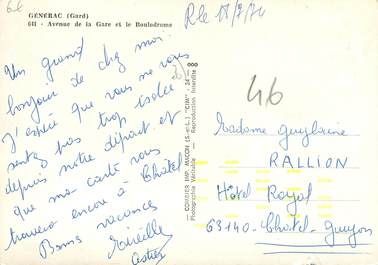 GÉNÉRAC (Gard)
641 - Avenue de la Gare et le Boulodrome
R le 18/7/74
46
Un grand
bonjour de chez moi.
J'espère que vous ne vous
sentez pas trop isolée
depuis notre départ et
que ma carte vous
trouvera encore à Châtel
Bonnes vacances
Mireille
COMBIER IMP. MACON (S.-et-L.) "CIM"
Photographie Véritable - Reproduction Interdite
Madame Guylaine
RALLION
Hôtel Royal
63140 - Chatel-Guyon